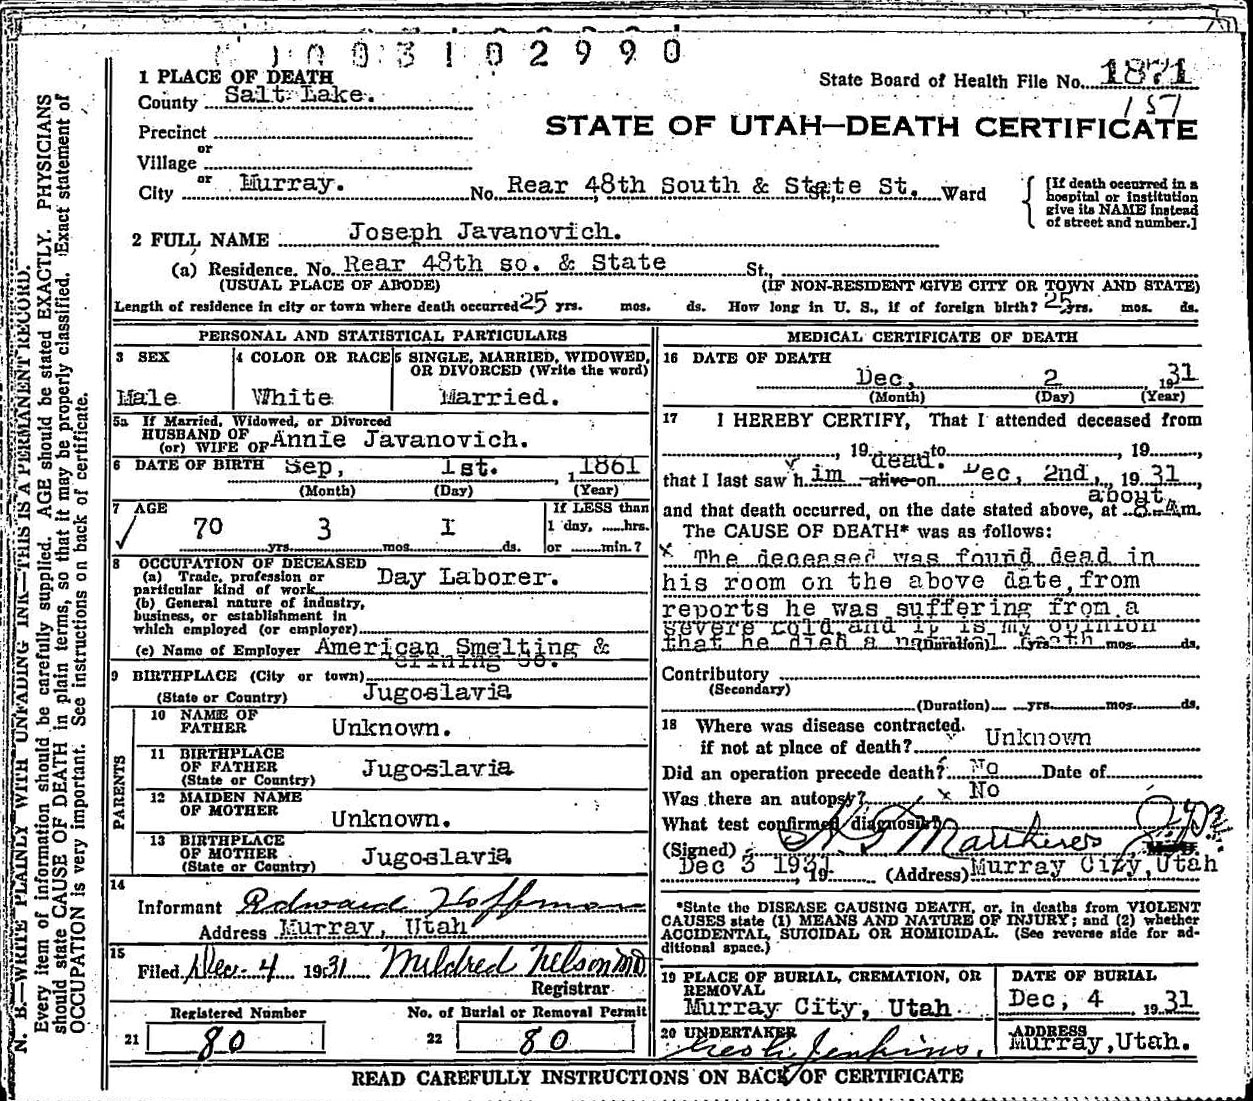 0 0 3 1 0 2 9 9 0
State Board of Health File No. 1871
157
STATE OF UTAH—DEATH CERTIFICATE
1 PLACE OF DEATH
County Salt Lake.
Precinct
or
Village
or
City Murray. No. Rear 48th South & State St. St., Ward
[If death occurred in a
hospital or institution
give its NAME instead
of street and number.]
2 FULL NAME Joseph Javanovich.
(a) Residence. No. Rear 48th so. & State St.,
(USUAL PLACE OF ABODE) (IF NON-RESIDENT GIVE CITY OR TOWN AND STATE)
Length of residence in city or town where death occurred 25 yrs. mos. ds. How long in U. S., if of foreign birth? 25 yrs. mos. ds.
PERSONAL AND STATISTICAL PARTICULARS
3 SEX
Male
4 COLOR OR RACE
White
5 SINGLE, MARRIED, WIDOWED,
OR DIVORCED (Write the word)
Married.
5a If Married, Widowed, or Divorced
HUSBAND OF
(or) WIFE OF Annie Javanovich.
6 DATE OF BIRTH Sep, 1st. , 1861
(Month) (Day) (Year)
7 AGE
70 yrs. 3 mos. 1 ds.
If LESS than
1 day, hrs.
or min.?
8 OCCUPATION OF DECEASED
(a) Trade, profession or
particular kind of work Day Laborer.
(b) General nature of industry,
business, or establishment in
which employed (or employer)
(c) Name of Employer American Smelting &
9 BIRTHPLACE (City or town)
(State or Country) Jugoslavia
PARENTS
10 NAME OF
FATHER Unknown.
11 BIRTHPLACE
OF FATHER
(State or Country) Jugoslavia
12 MAIDEN NAME
OF MOTHER Unknown.
13 BIRTHPLACE
OF MOTHER
(State or Country) Jugoslavia
14
Informant Edward Hoffman
Address Murray, Utah
15
Filed Dec. 4 1931 Mildred Nelson MD
Registrar
Registered Number
21 80
No. of Burial or Removal Permit
22 80
MEDICAL CERTIFICATE OF DEATH
16 DATE OF DEATH
Dec, 2 1931
(Month) (Day) (Year)
17 I HEREBY CERTIFY, That I attended deceased from
, 19 to , 19 ,
dead.
that I last saw h im alive on Dec, 2nd, , 19 31
about
and that death occurred, on the date stated above, at 8 Am.
The CAUSE OF DEATH* was as follows:
x The deceased was found dead in
his room on the above date, from
reports he was suffering from a
severe cold and it is my opinion
that he died a natural death (Duration) yrs. mos. ds.
Contributory
(Secondary)
(Duration) yrs. mos. ds.
18 Where was disease contracted.
if not at place of death? Unknown
Did an operation precede death? No Date of
Was there an autopsy? x No
What test confirmed diagnosis?
(Signed)
Dec 3 1931 , 19 (Address) Murray City, Utah
*State the DISEASE CAUSING DEATH, or, in deaths from VIOLENT
CAUSES state (1) MEANS AND NATURE OF INJURY; and (2) whether
ACCIDENTAL, SUICIDAL OR HOMICIDAL. (See reverse side for ad-
ditional space.)
19 PLACE OF BURIAL, CREMATION, OR
REMOVAL
Murray City, Utah
DATE OF BURIAL
Dec, 4 1931
20 UNDERTAKER
Jenkins.
ADDRESS
Murray, Utah.
READ CAREFULLY INSTRUCTIONS ON BACK OF CERTIFICATE
N. B.—WRITE PLAINLY WITH UNFADING INK—THIS IS A PERMANENT RECORD.
Every item of information should be carefully supplied. AGE should be stated EXACTLY. PHYSICIANS
should state CAUSE OF DEATH in plain terms, so that it may be properly classified. Exact statement of
OCCUPATION is very important. See instructions on back of certificate.